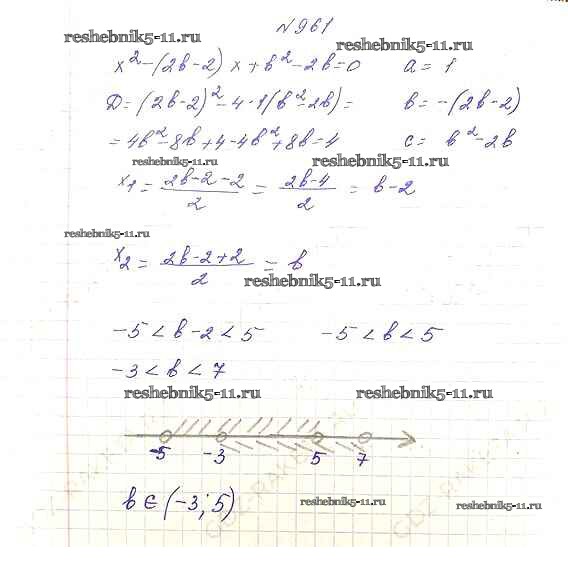 №961
reshebnik5-11.ru
x² - (2b-2)x + b² - 2b = 0 a = 1
reshebnik5-11.ru
D = (2b-2)² - 4·1(b² - 2b) = b = -(2b-2)
= 4b² - 8b + 4 - 4b² + 8b = 4 c = b² - 2b
reshebnik5-11.ru reshebnik5-11.ru
x₁ = (2b-2-2)/2 = (2b-4)/2 = b-2
reshebnik5-11.ru
x₂ = (2b-2+2)/2 = b
reshebnik5-11.ru
-5 < b-2 < 5 -5 < b < 5
-3 < b < 7
reshebnik5-11.ru reshebnik5-11.ru
-5 -3 5 7
b ∈ (-3; 5)
reshebnik5-11.ru reshebnik5-11.ru